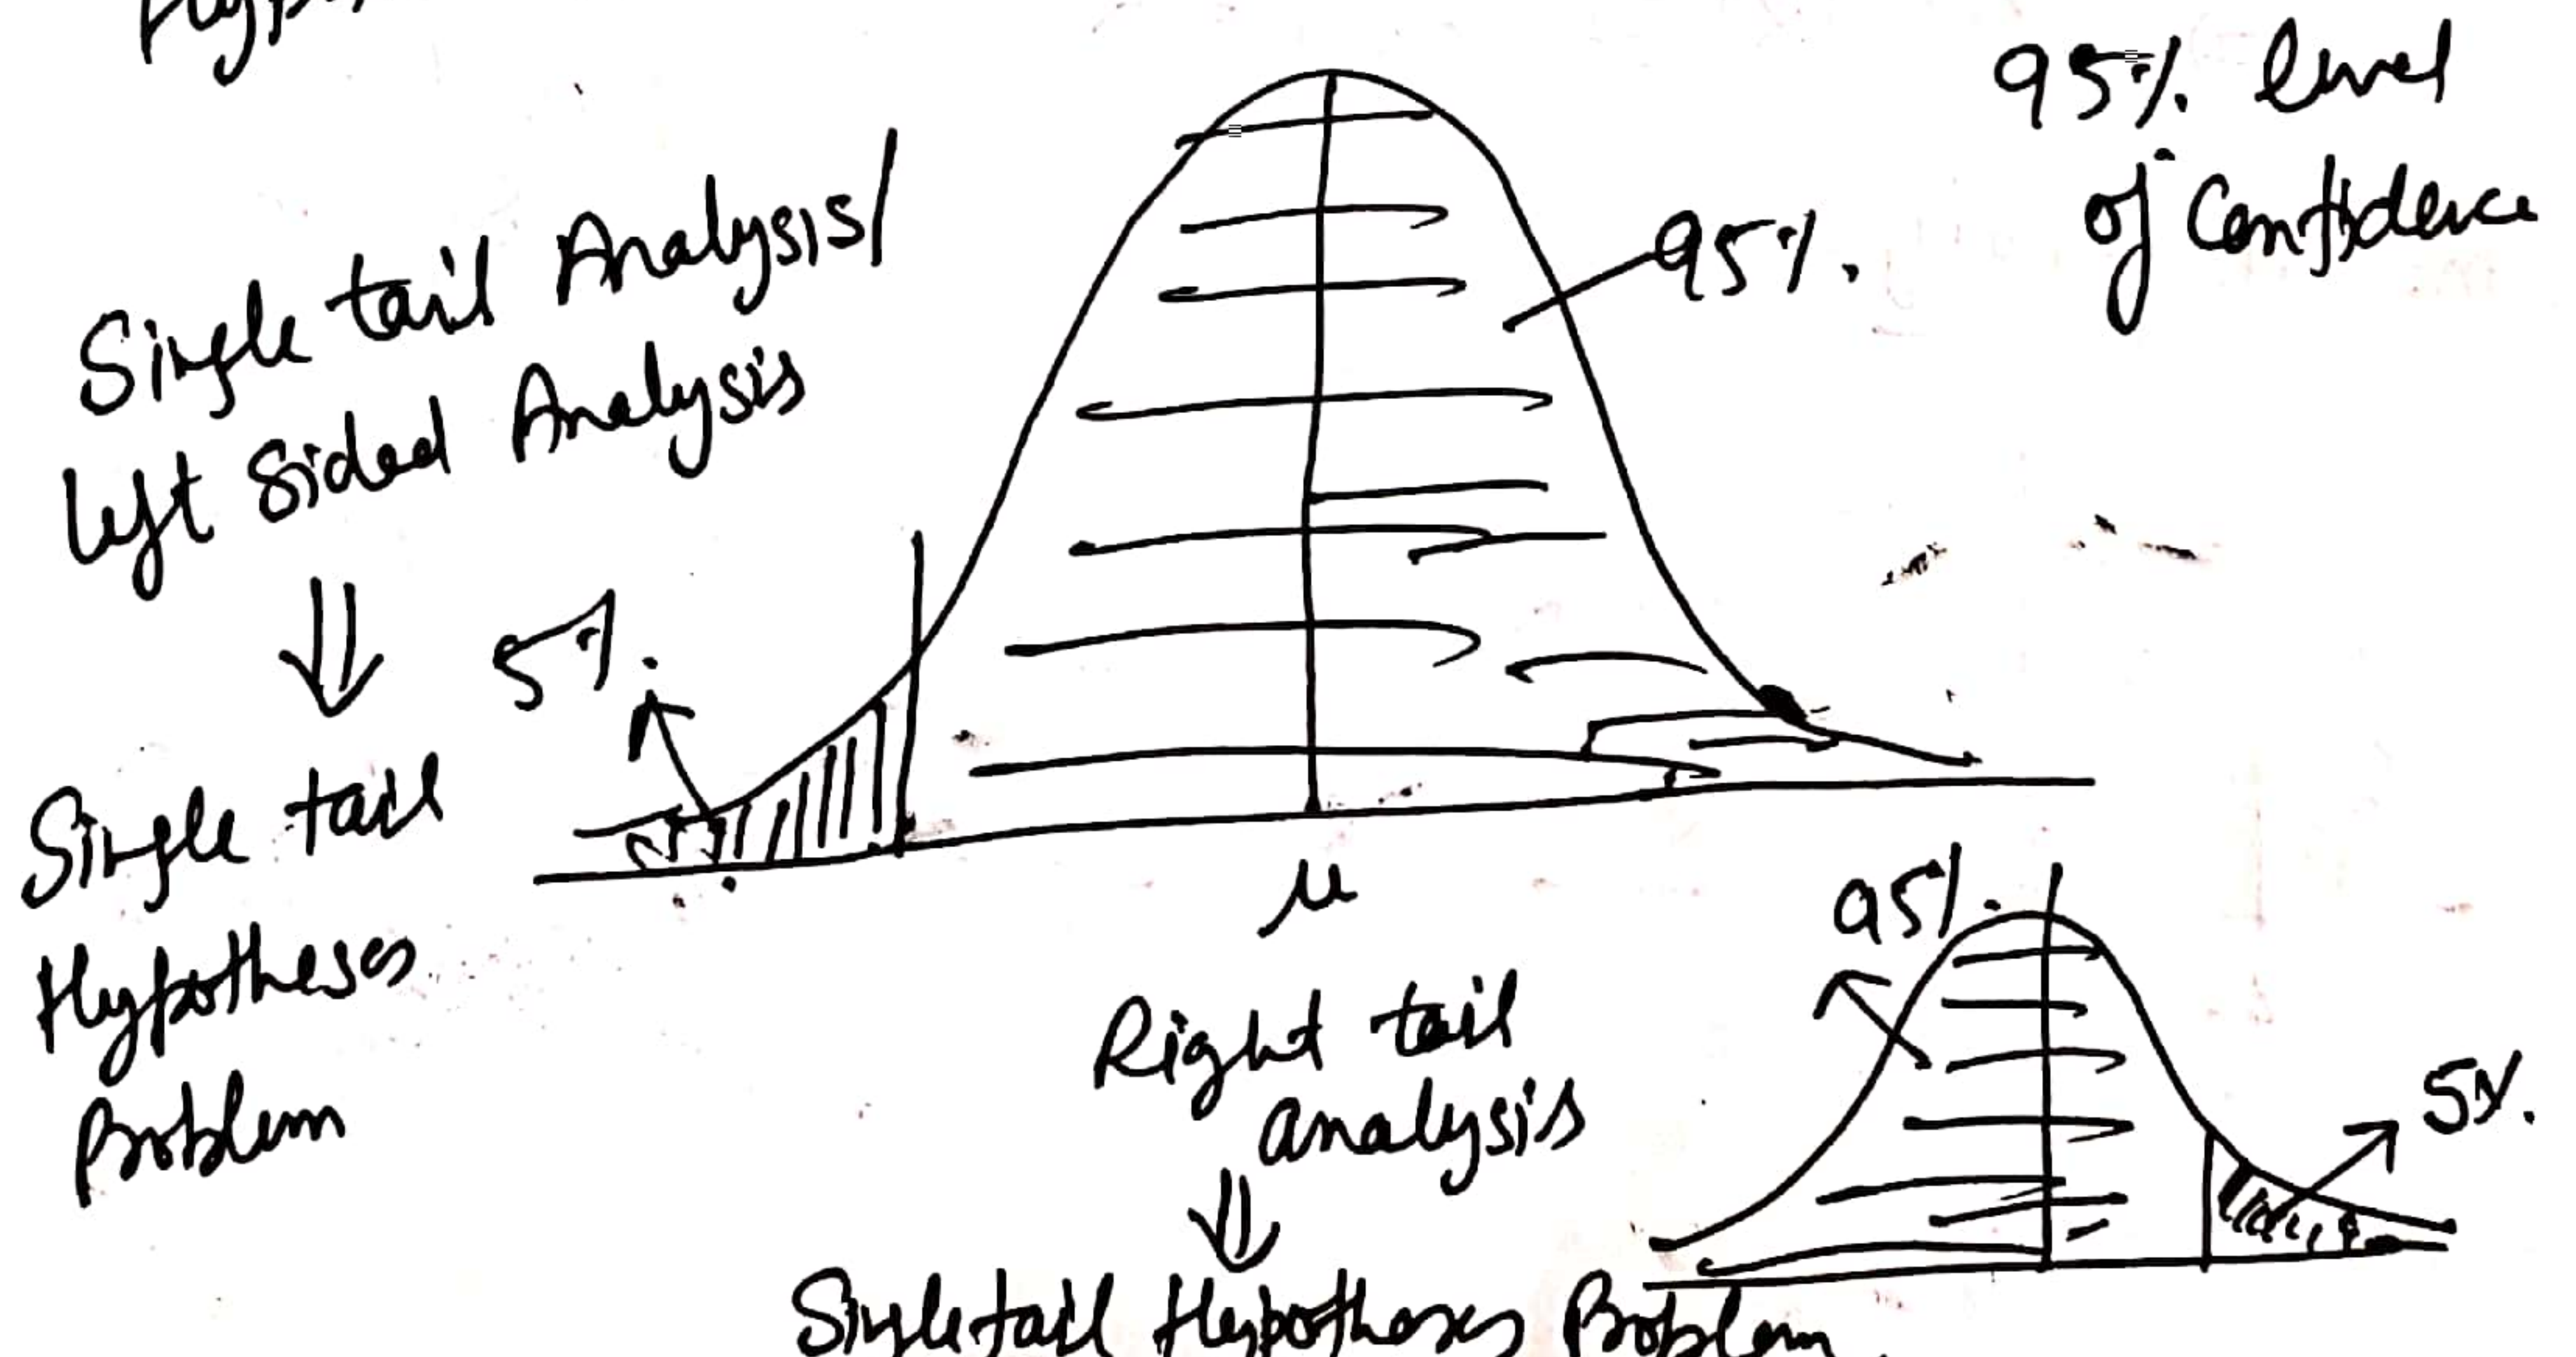 95% level
of Confidence
Single tail Analysis/
left Sided Analysis
95%.
5%.
Single tail
Hypotheses
Problem
μ
95%.
Right tail
analysis
5%.
Single tail Hypotheses Problem